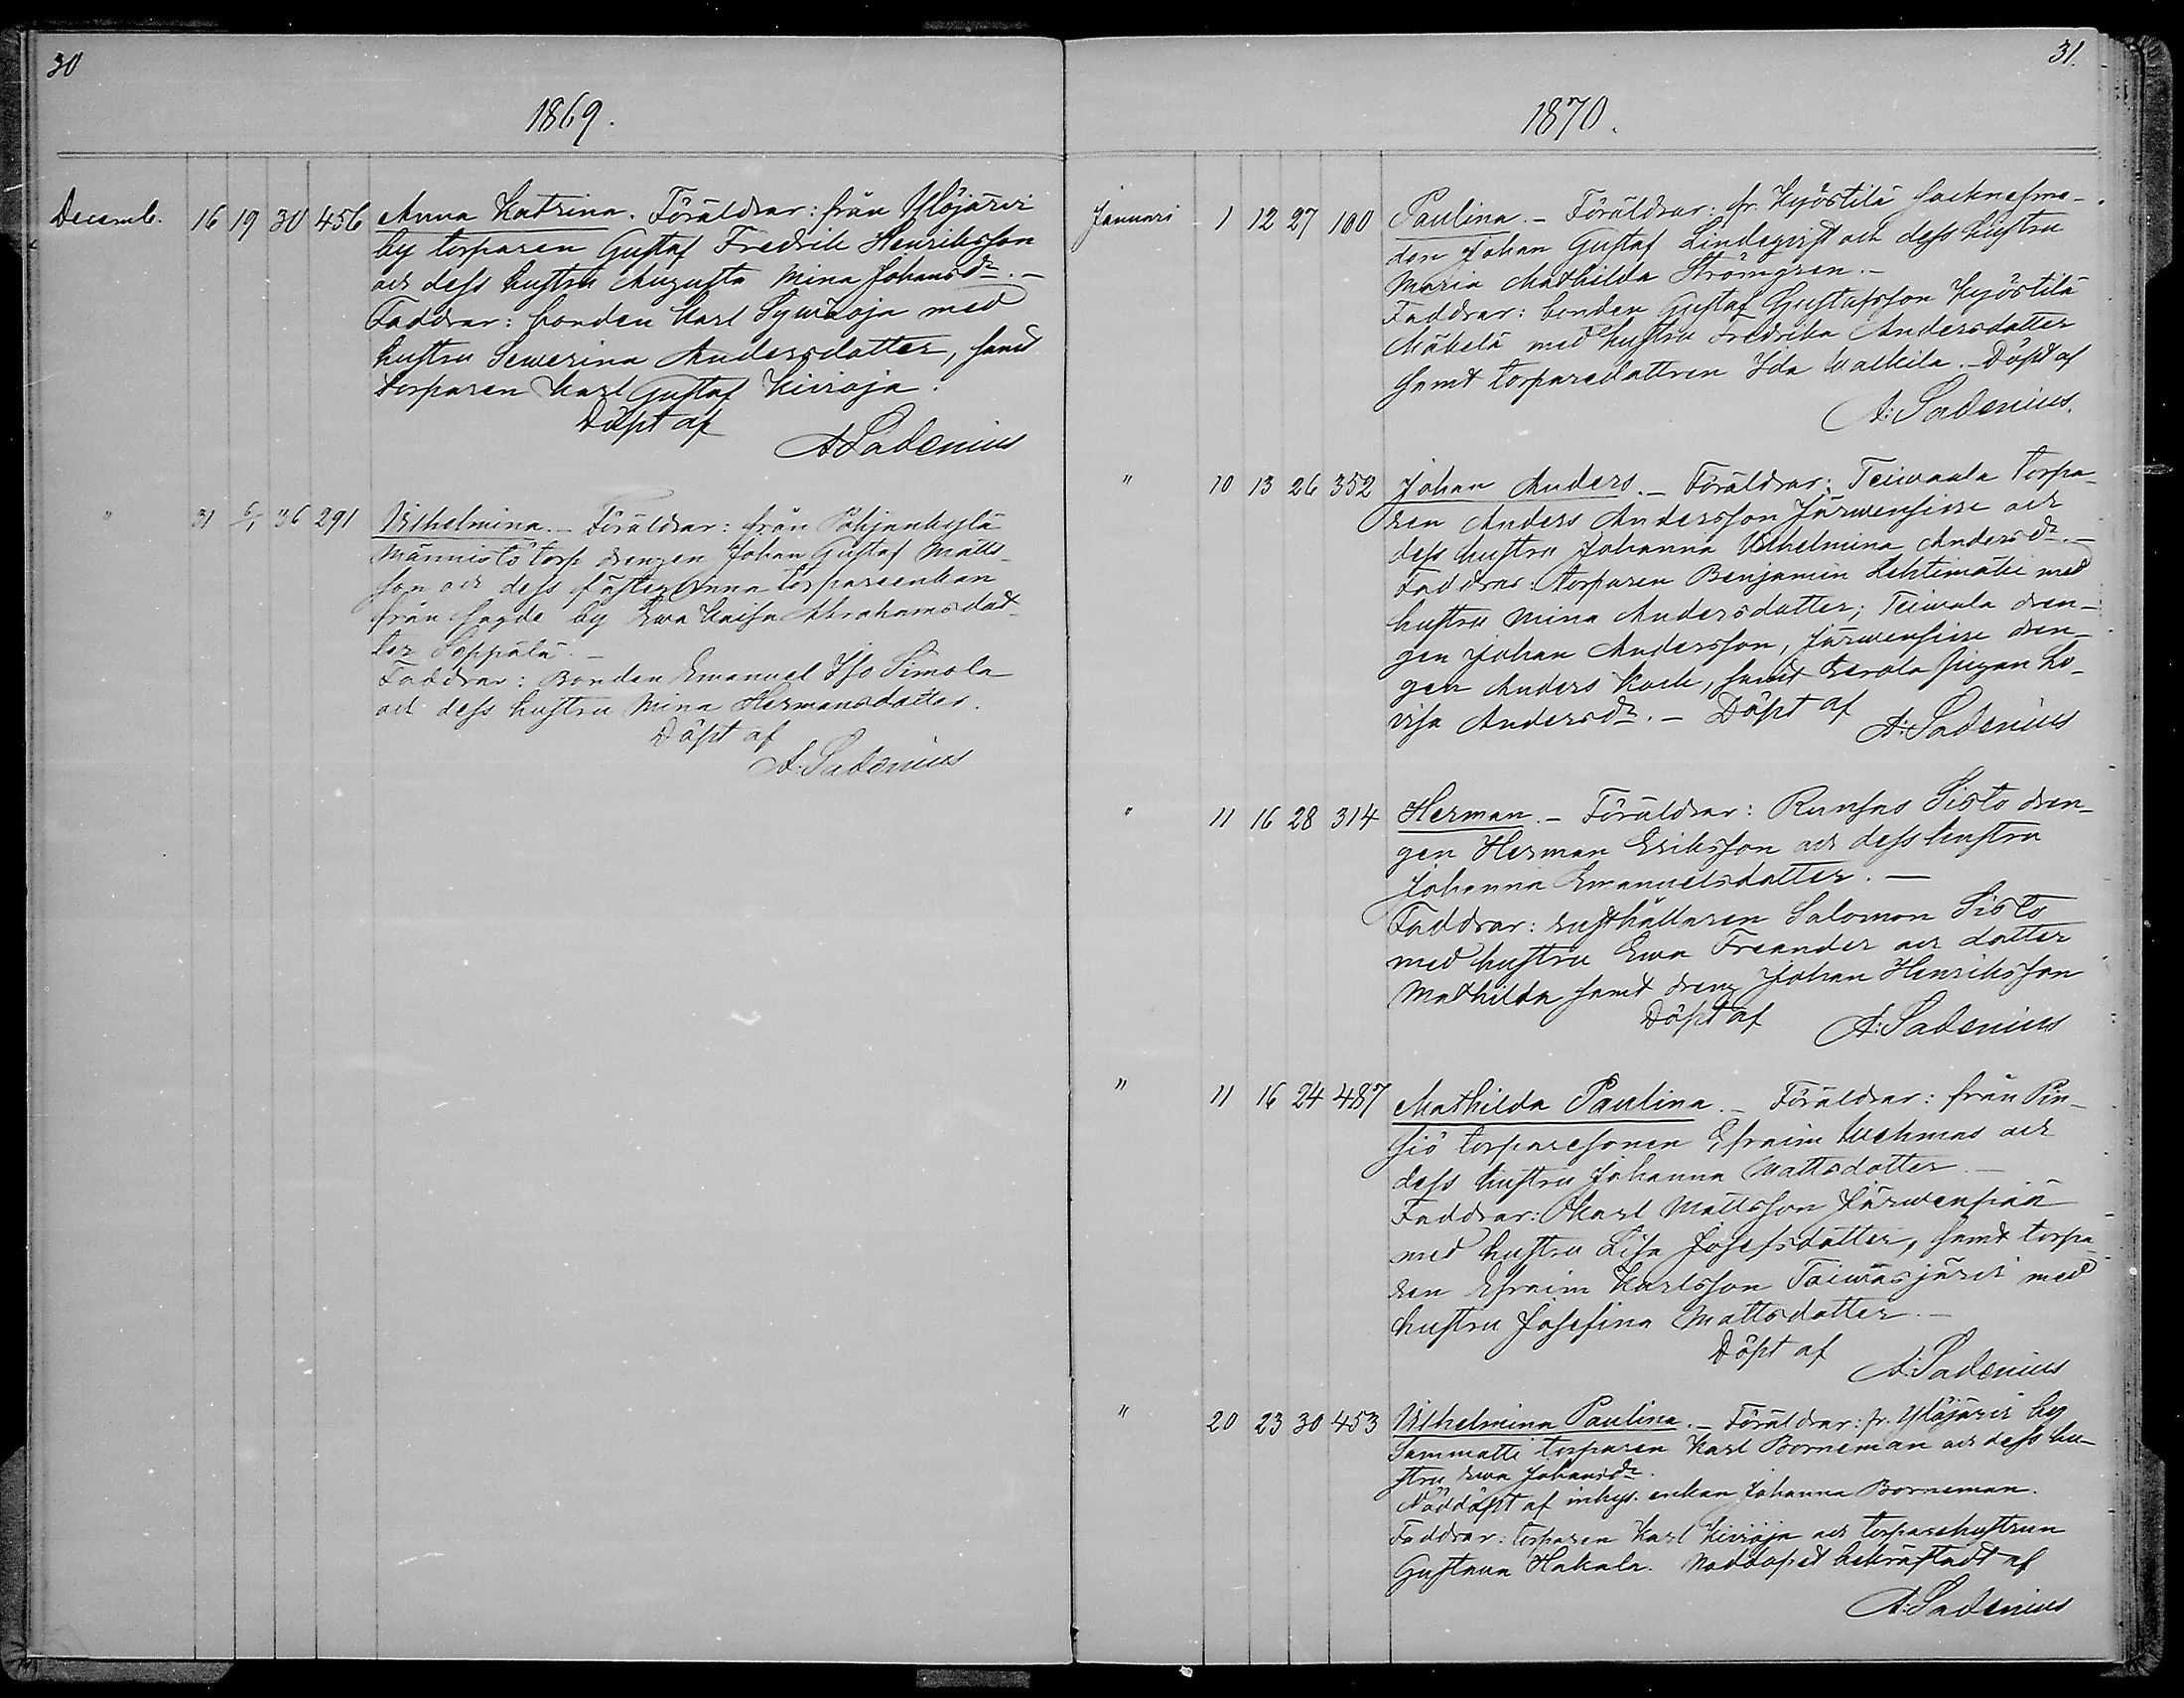 30
1869.
Decemb. 16 19 30 456 Anna Katrina. Föräldrar: från Ylöjärvi
by torparen Gustaf Fredrik Henriksson
och dess hustru Augusta Mina Johansdr. –
Faddrar: bonden Karl Sywäoja med
hustru Sewerina Andersdotter, samt
torparen Karl Gustaf Kivioja.
Döpt af
A. Sadenius
" 31 6/1 36 291 Vilhelmina. – Föräldrar: från Pohjankylä
Männistö torp drengen Johan Gustaf Matts-
son och dess fästeqvinna torpareenkan
från sagde by Ewa Kaisa Abrahamsdot-
ter Seppälä. –
Faddrar: Bonden Emanuel Iso Simola
och dess hustru Mina Hermansdotter.
Döpt af
A: Sadenius
31.
1870.
Januari 1 12 27 100 Paulina. – Föräldrar: fr. Kyöstilä
den Johan Gustaf Lindeqvist och dess hustru
Maria Mathilda Strömgren. –
Faddrar: bonden Gustaf Gustafsson Kyöstilä
Mäkelä med hustru Fredrika Andersdotter
samt torparedottren Ida Walkila. – Döpt af
A: Sadenius.
" 10 13 26 352 Johan Anders. – Föräldrar: Teiwaala torpa-
ren Anders Andersson Järwensivu och
dess hustru Johanna Vilhelmina Andersdr. –
Faddrar: torparen Benjamin Lehtimäki med
hustru Mina Andersdotter; Teiwala dren-
gen Johan Andersson, Järwensivu dren-
gen Anders Koch, samt Kerola pigan Lo-
visa Andersdr. – Döpt af
A: Sadenius
" 11 16 28 314 Herman. – Föräldrar: Runsas Sisto dren-
gen Herman Eriksson och dess hustru
Johanna Emanuelsdotter. –
Faddrar: rusthållaren Salomon Sisto
med hustru Ewa Freander och dotter
Mathilda samt dreng Johan Henriksson
Döpt af
A: Sadenius
" 11 16 24 487 Mathilda Paulina. – Föräldrar: från Pin-
siö torparesonen Efraim Wehmas och
dess hustru Johanna Mattsdotter. –
Faddrar: Karl Mattsson Järwenpää
med hustru Lisa Josefsdotter, samt torpa-
ren Efraim Karlsson Taiwasjärvi med
hustru Josefina Mattsdotter. –
Döpt af
A: Sadenius
" 20 23 30 453 Vilhelmina Paulina. – Föräldrar: fr. Ylöjärvi by
Sammatti torparen Karl Borneman och dess hu-
stru Ewa Johansdr.
Nöddöpt af inhys. enkan Johanna Borneman.
Faddrar: torparen Karl Kivioja och torparehustrun
Gustava Hakala. Nöddopet bekräftadt af
A: Sadenius